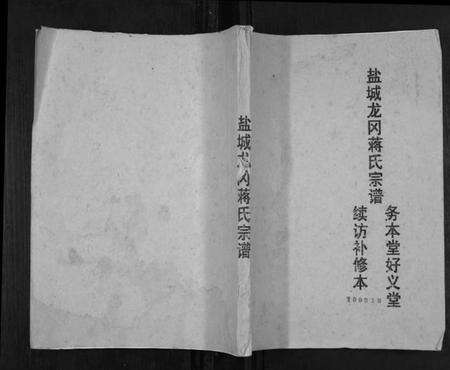 盐城龙冈蒋氏宗谱
务本堂好义堂
续访补修本
盐城龙冈蒋氏宗谱